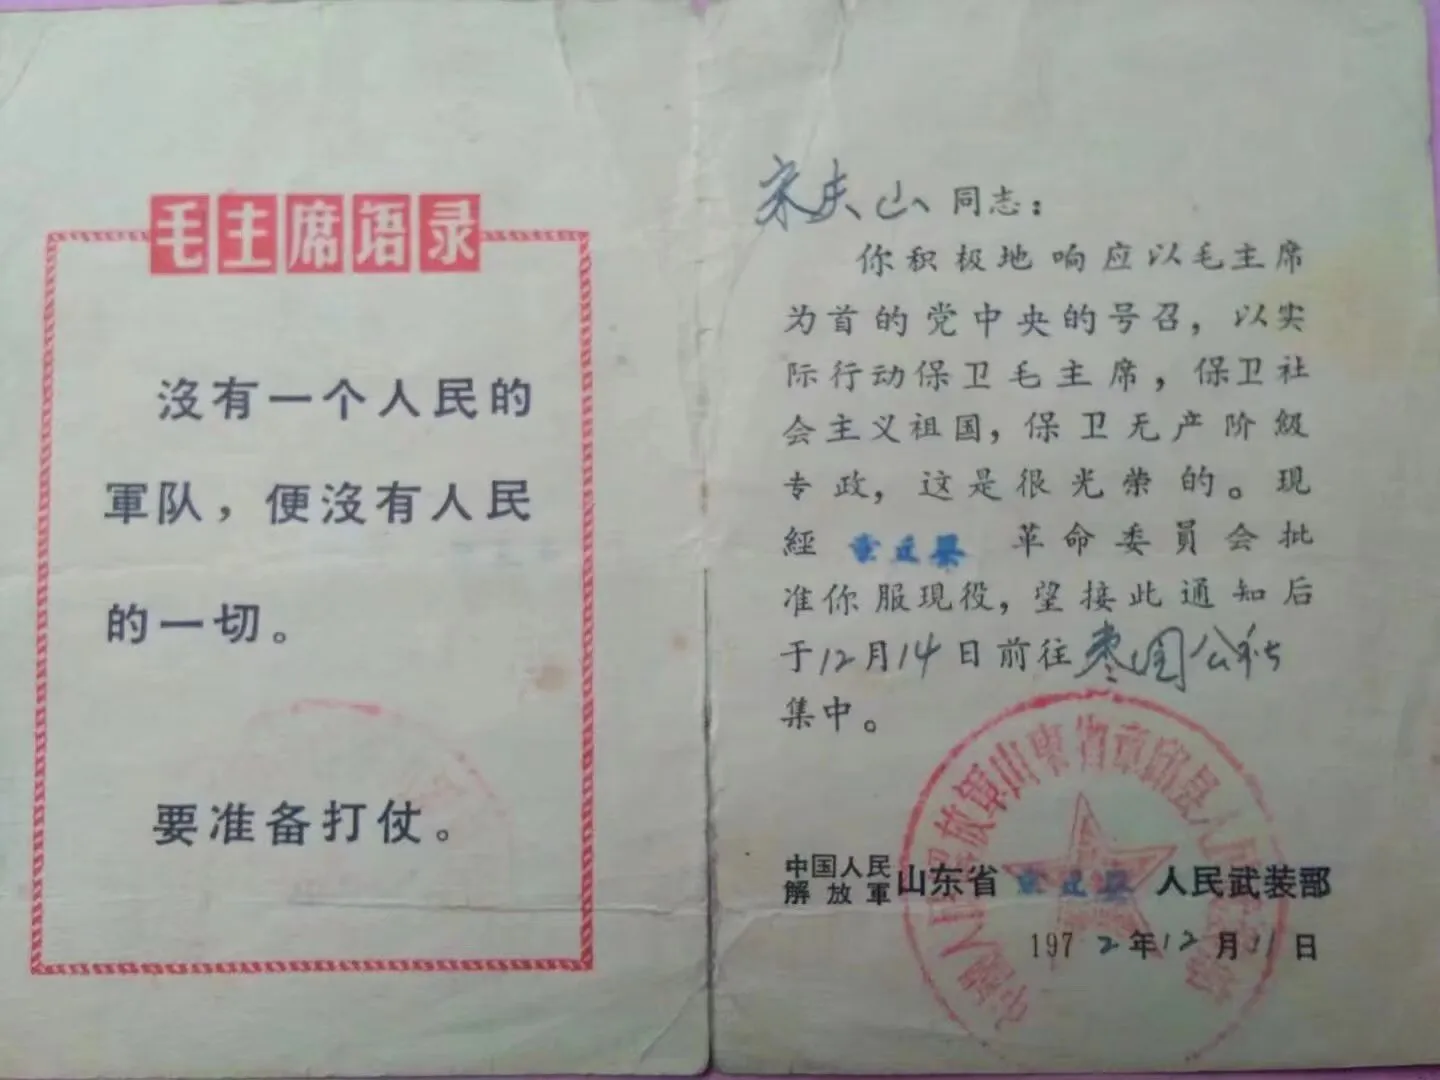 毛主席语录
沒有一个人民的
軍队，便沒有人民
的一切。
要准备打仗。
宋庆山同志：
你积极地响应以毛主席
为首的党中央的号召，以实
际行动保卫毛主席，保卫社
会主义祖国，保卫无产阶級
专政，这是很光荣的。现
經 章丘县 革命委員会批
准你服现役，望接此通知后
于12月14日前往枣园公社
集中。
中国人民解放軍山东省章丘县人民武装部
1972年12月11日
中国人民解放軍山東省章邱县人民武装部